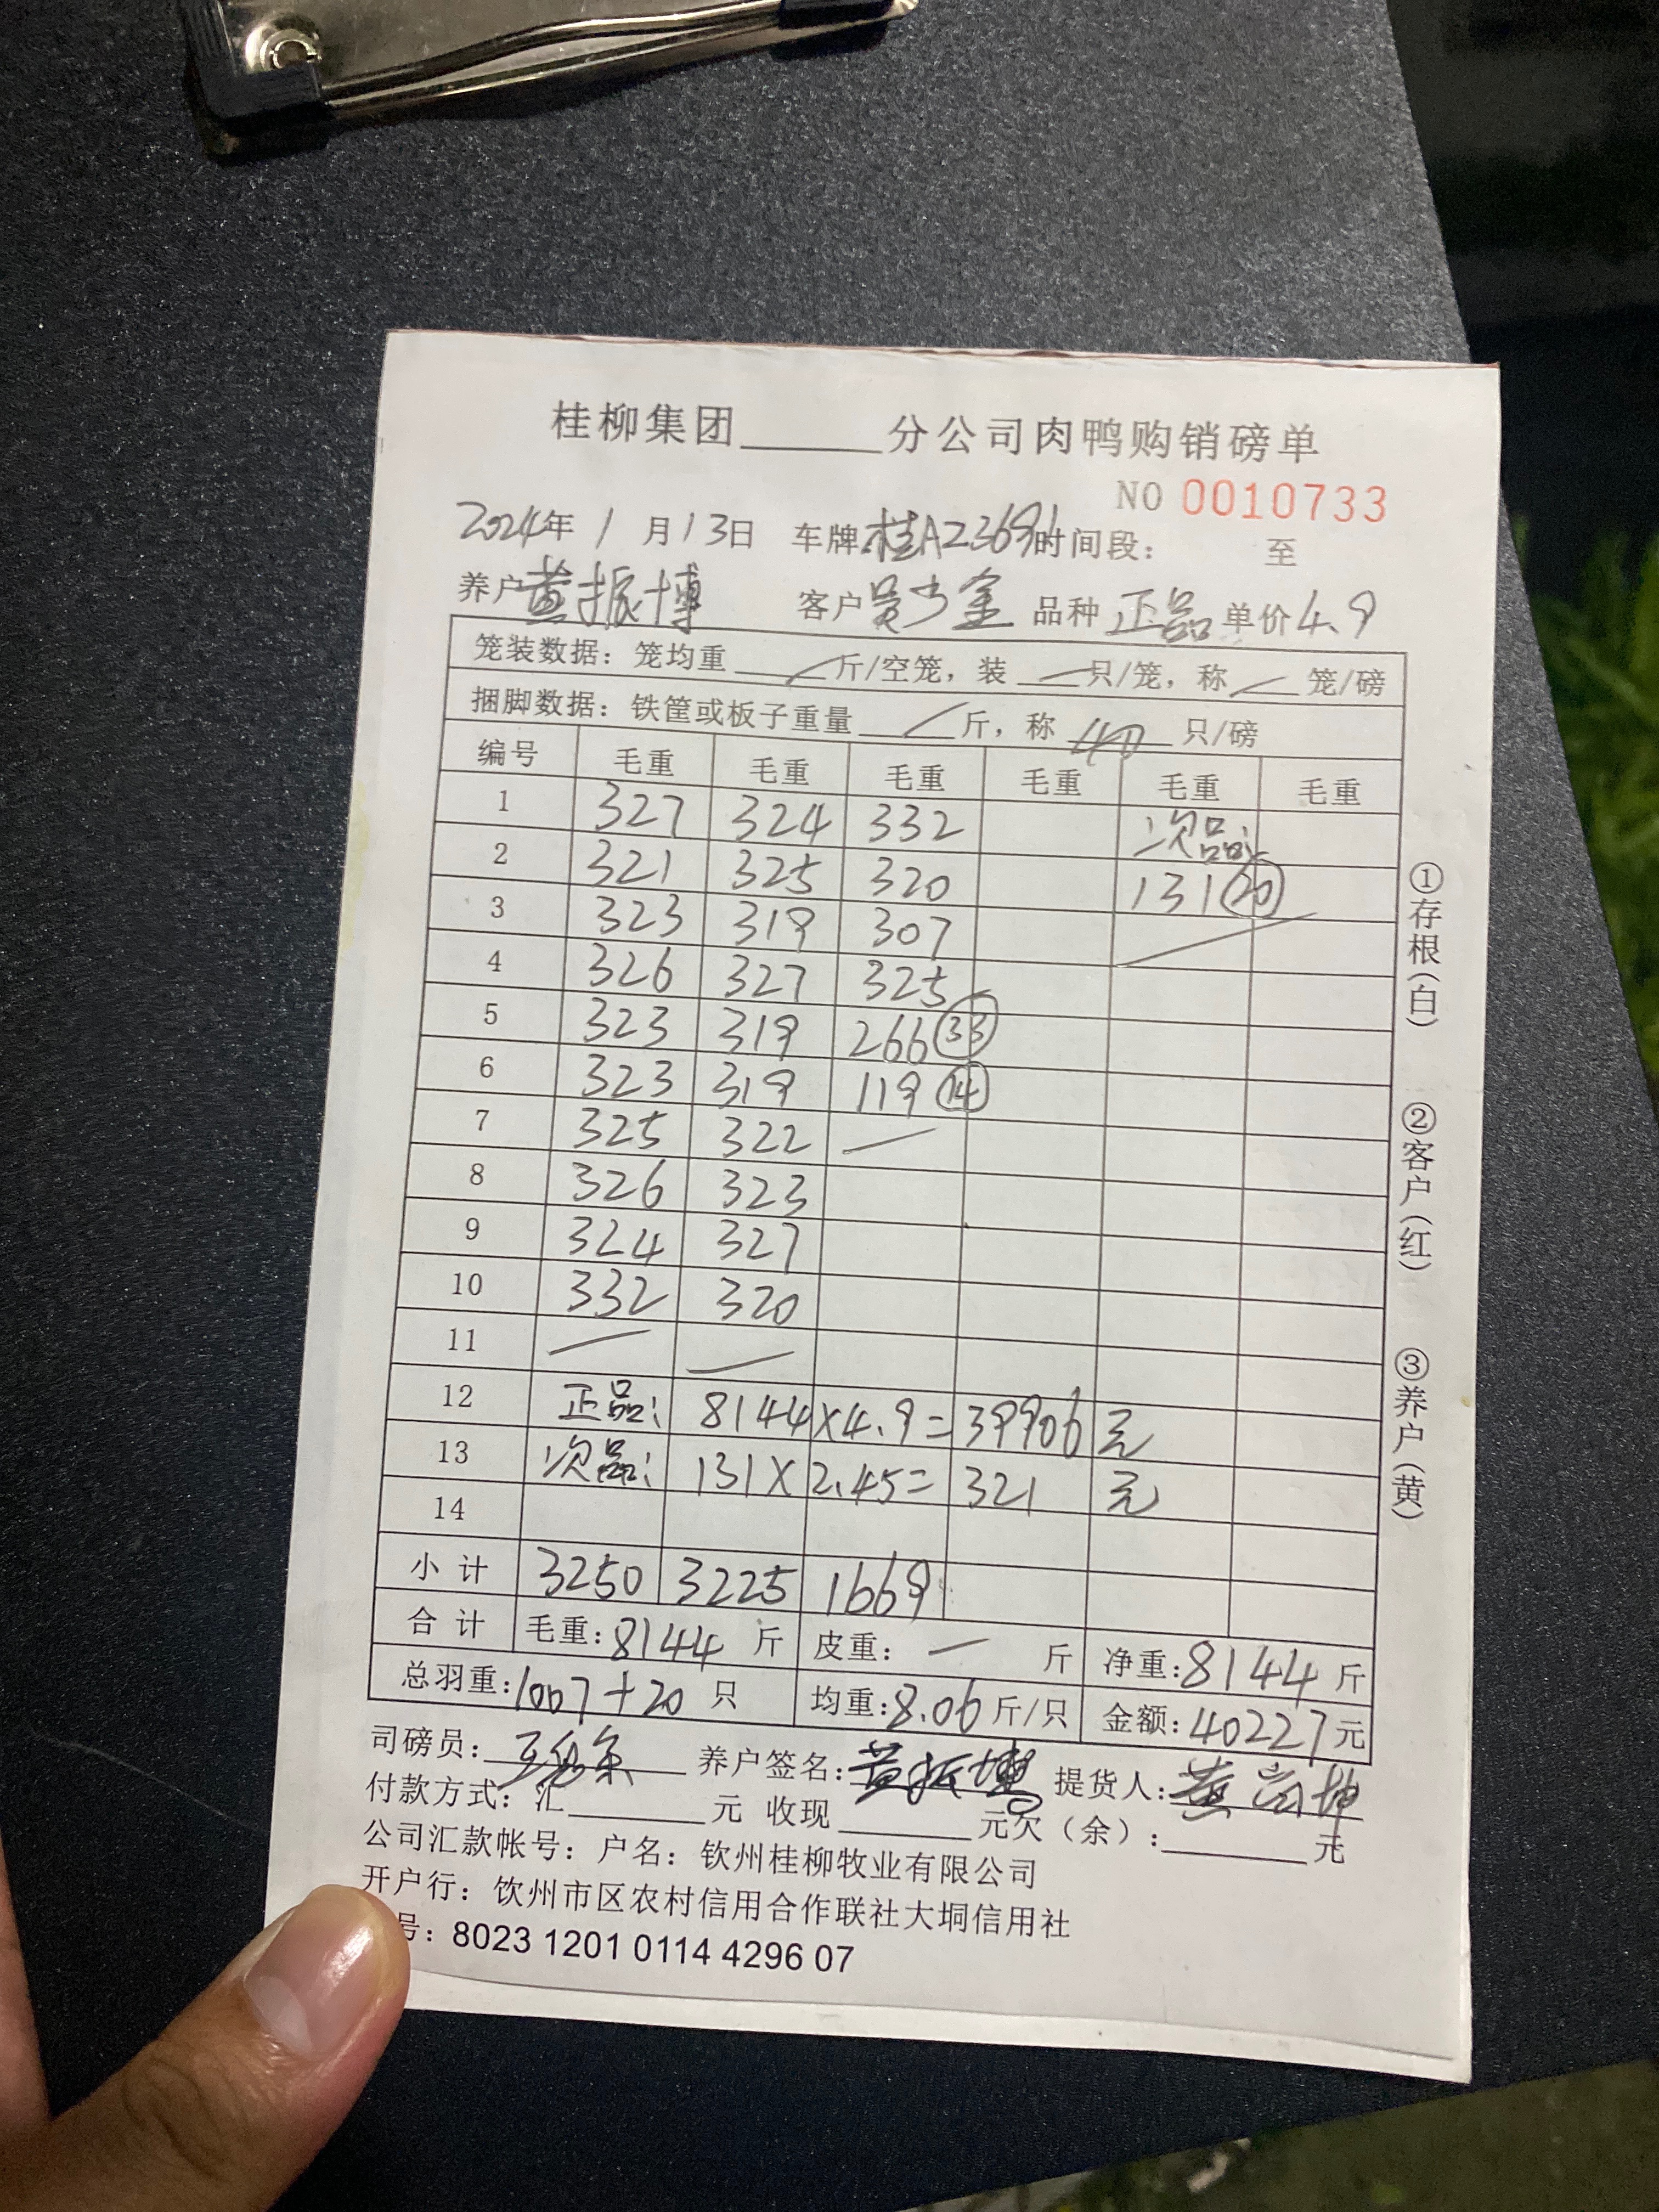 桂柳集团______分公司肉鸭购销磅单
NO 0010733
2024年 1 月13日 车牌:桂A23691时间段: 至
养户黄振博 客户吴少金 品种 正品 单价4.9
笼装数据: 笼均重 ___斤/空笼, 装 ___只/笼, 称 ___ 笼/磅
捆脚数据: 铁筐或板子重量 ___斤, 称 40 只/磅
编号 毛重 毛重 毛重 毛重 毛重 毛重
1 327 324 332 次品:
2 321 325 320 131 (20)
3 323 319 307
4 326 327 325
5 323 319 266 (33)
6 323 319 119 (14)
7 325 322 —
8 326 323
9 324 327
10 332 320
11 — —
12 正品: 8144×4.9= 39906 元
13 次品: 131× 2.45= 321 元
14
小 计 3250 3225 1669
合 计 毛重: 8144 斤 皮重: — 斤 净重: 8144 斤
总羽重: 1007+20 只 均重: 8.06 斤/只 金额: 40227元
司磅员: 养户签名: 黄振博 提货人: 黄
付款方式: 汇______元 收现______元欠(余): ______元
公司汇款帐号: 户名: 钦州桂柳牧业有限公司
开户行: 饮州市区农村信用合作联社大垌信用社
号: 8023 1201 0114 4296 07
①存根(白)
②客户(红)
③养户(黄)